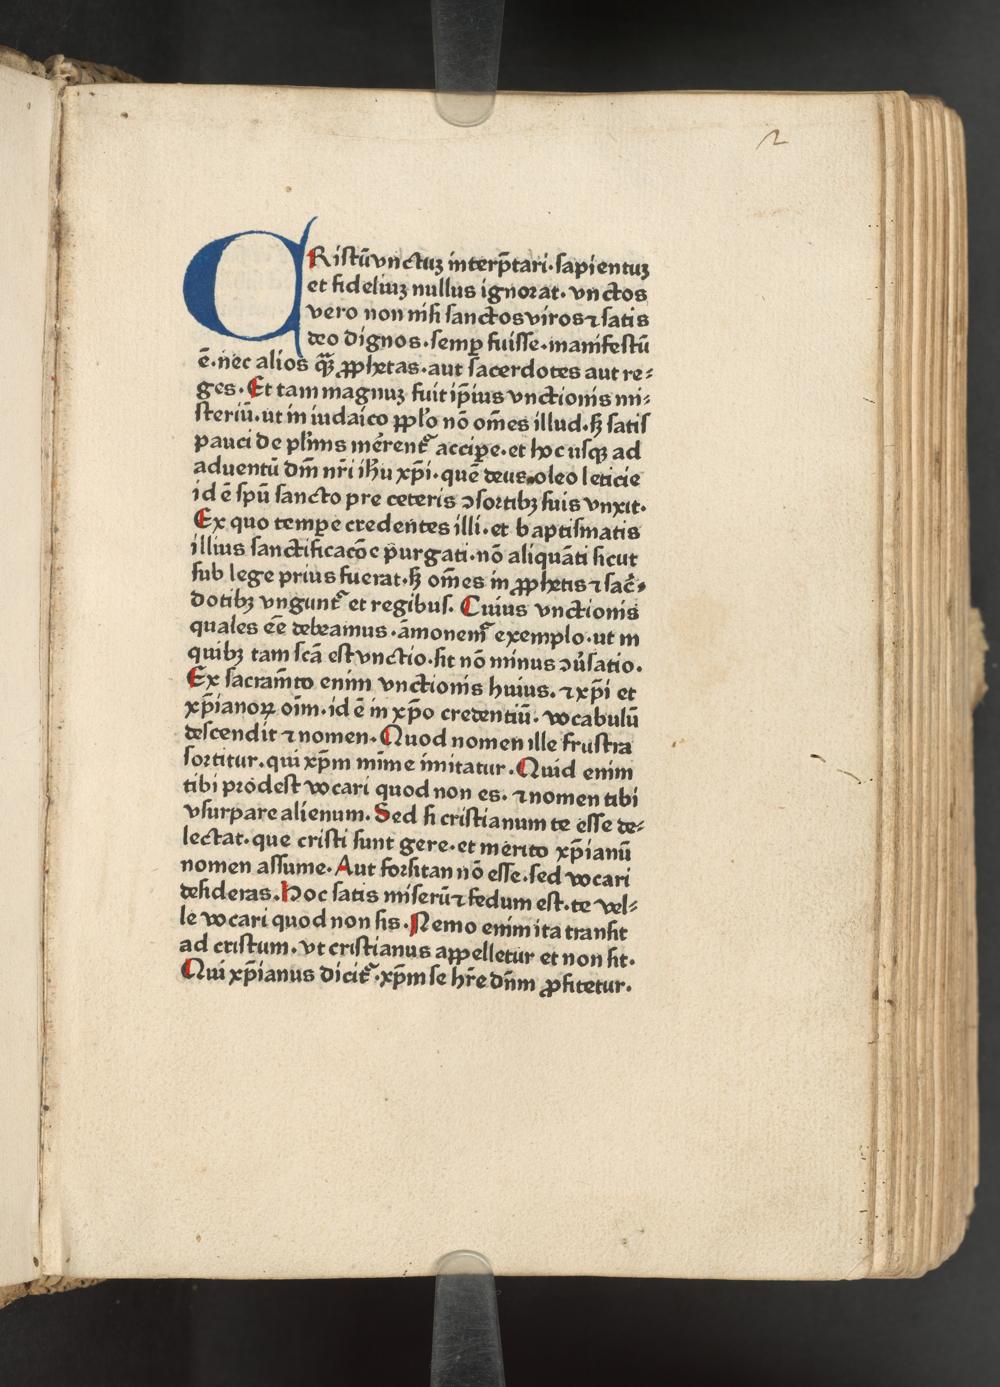 2
CRistū vnctuꝫ interp̄tari· sapientuꝫ
et fideliuꝫ nullus ignorat· vnctos
vero non nisi sanctos viros ⁊ satis
deo dignos· semꝑ fuisse· manifestū
ē· nec alios qͣꝫ ꝓphetas· aut sacerdotes aut re⸗
ges· Et tam magnuꝫ fuit ip̄ius vnctionis mi⸗
steriū· ut in iudaico ꝓpl̓o nō om̄es illud· sꝫ satis
pauci de pl̓imis mēren̄t accipe· et hoc usqꝫ ad
aduentū dm̄ nr̄i ih̄u xp̄i· quē deus oleo leticie
id ē spū sancto pre ceteris ↄsortibꝫ suis vnxit·
Ex quo tempe credentes illi· et baptismatis
illius sanctificacōe purgati· nō aliquāti sicut
sub lege prius fuerat· sꝫ om̄es in ꝓphetis ⁊ sac̄⸗
dotibꝫ vngunt᷑ et regibus. Cuius vnctionis
quales eē debeamus· āmonem᷑ exemplo· ut in
quibꝫ tam scā est vnctio· sit nō minus ↄūsatio·
Ex sacram̄to enim vnctionis huius· ⁊ xp̄i et
xp̄ianoꝝ oīm· id ē in xp̄o credentiū· vocabulū
descendit ⁊ nomen· Quod nomen ille frustra
sortitur· qui xp̄m mīme imitatur· Quid enim
tibi prodest vocari quod non es· ⁊ nomen tibi
vsurpare alienum. Sed si cristianum te esse de⸗
lectat· que cristi sunt gere· et merito xp̄ianū
nomen assume· Aut forsitan nō esse· sed vocari
desideras· Hoc satis miserū ⁊ fedum est· te vel⸗
le vocari quod non sis· Nemo enim ita transit
ad cristum· vt cristianus appelletur et non sit·
Qui xp̄ianus dicit᷑· xp̄m se hr̄e dn̄m ꝓfitetur·